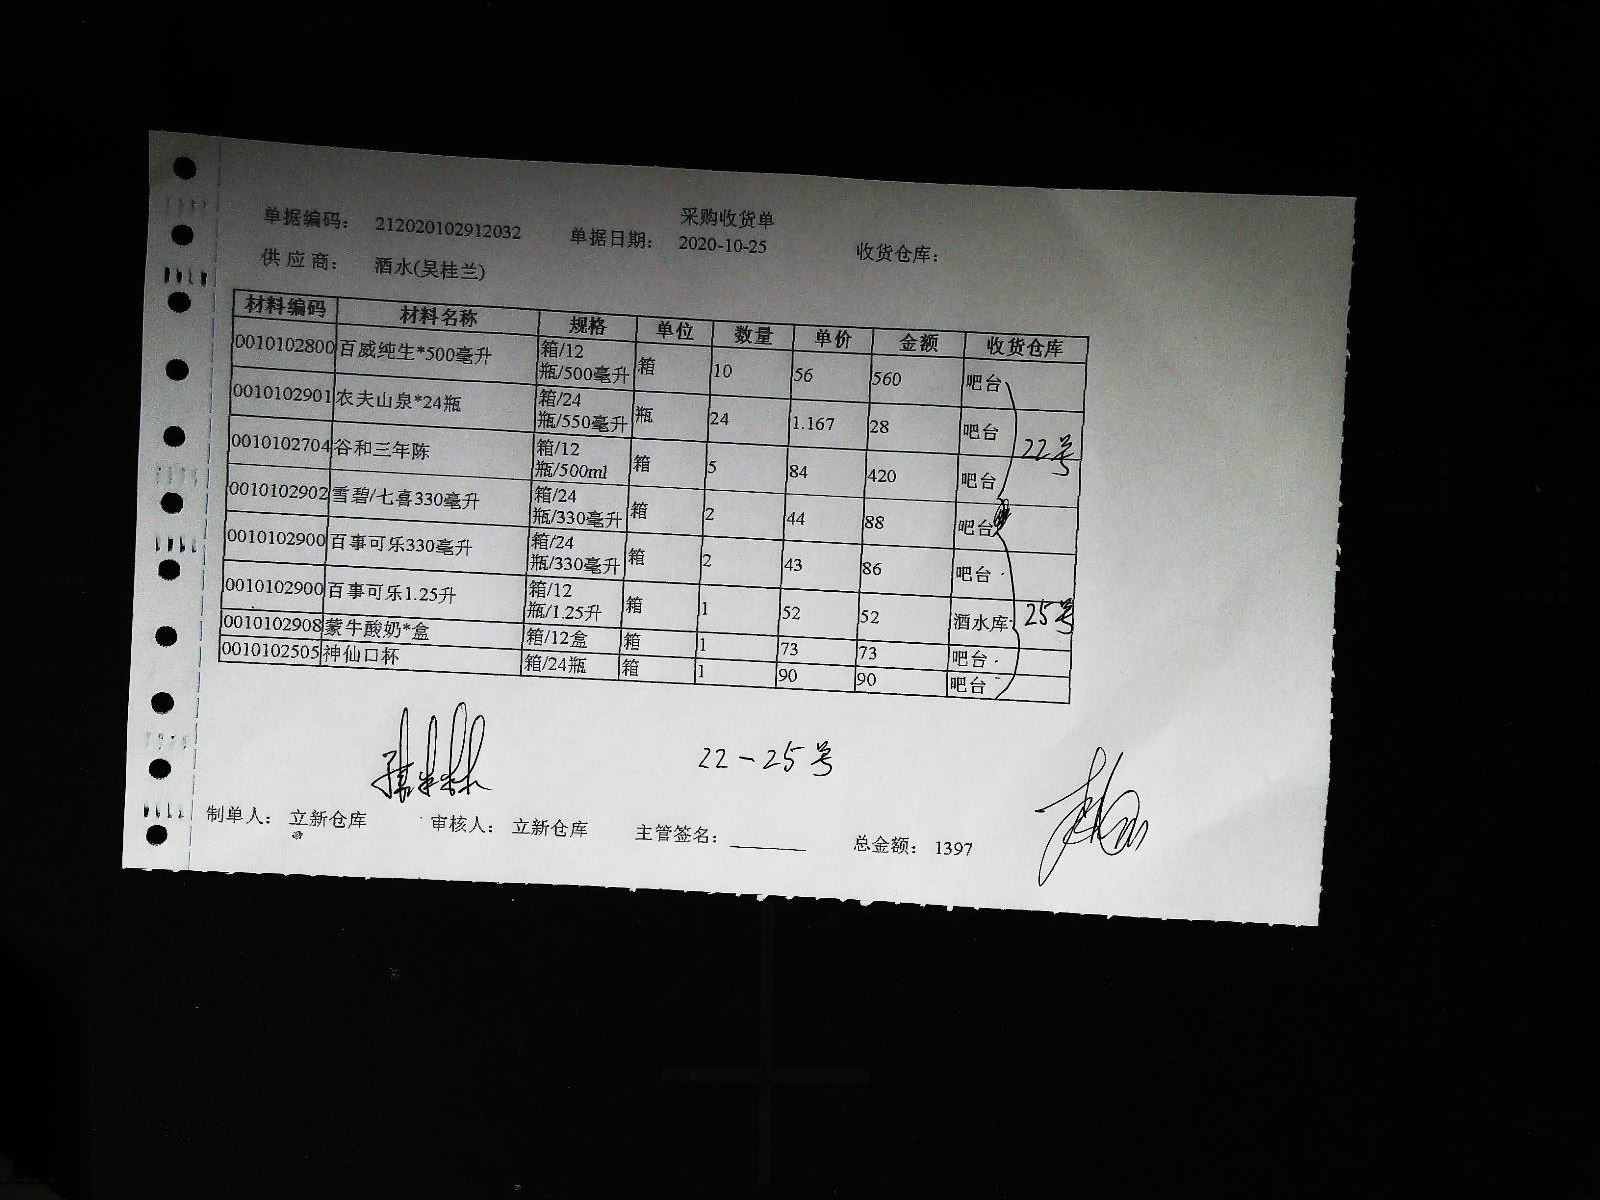 采购收货单
单据编码： 212020102912032 单据日期： 2020-10-25 收货仓库：
供 应 商： 酒水(吴桂兰)
材料编码 材料名称 规格 单位 数量 单价 金额 收货仓库
0010102800 百威纯生*500毫升 箱/12瓶/500毫升 箱 10 56 560 吧台
0010102901 农夫山泉*24瓶 箱/24瓶/550毫升 瓶 24 1.167 28 吧台
22号
0010102704 谷和三年陈 箱/12瓶/500ml 箱 5 84 420 吧台
0010102902 雪碧/七喜330毫升 箱/24瓶/330毫升 箱 2 44 88 吧台
0010102900 百事可乐330毫升 箱/24瓶/330毫升 箱 2 43 86 吧台
0010102900 百事可乐1.25升 箱/12瓶/1.25升 箱 1 52 52 酒水库
25号
0010102908 蒙牛酸奶*盒 箱/12盒 箱 1 73 73 吧台
0010102505 神仙口杯 箱/24瓶 箱 1 90 90 吧台
22-25号
制单人： 立新仓库 审核人： 立新仓库 主管签名： 总金额： 1397